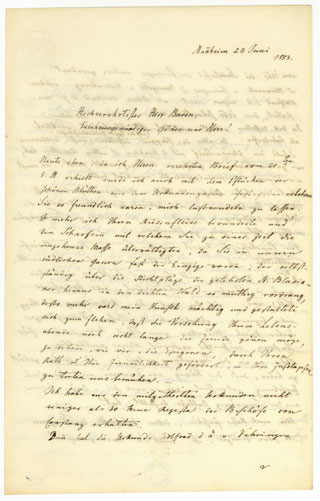 Mülheim 23 Juni
1883.
Hochverehrtester Herr Baron,
Verehrungswürdiger Gönner und Herr!
Heute eben, da ich Ihren verehrten Brief vom 20 ten
d. M. erhielt wurde ich auch mit dem Pflücken der
schönen Blüthen aus dem
Sie so freundlich waren, mich lustwandeln zu lassen
so mehr ich Ihren Riesenfleiss bewunderte und
den Scharfsinn mit welchem Sie zu einer Zeit die
ungeheure Masse überwältigten, da Sie in unsern
südlichen Gauen fast der Einzige waren, der selbst-
ständig über die der gelehrten St. Blasia-
ner hinaus in den dichten Wald so muthig vordrang,
desto mehr ward mein Wunsch mächtig und gestaltete
sich zum flehen, daß die Vorsehung Ihren Lebens-
abende noch recht lange die Freude gönnen möge,
zu sehen wie wir, die Epigonen, durch Ihren
Rath u Ihre Freundlichkeit gefördert, in Ihre Fußstapfen
zu treten uns bemühen.
Ich habe aus den mitgetheilten Urkunden nicht
weniger als 50 neue Regesta der Bischöfe von
Constanz erhalten.
Dann hat die Urkunde Wolfrad d ä v. Vehringen